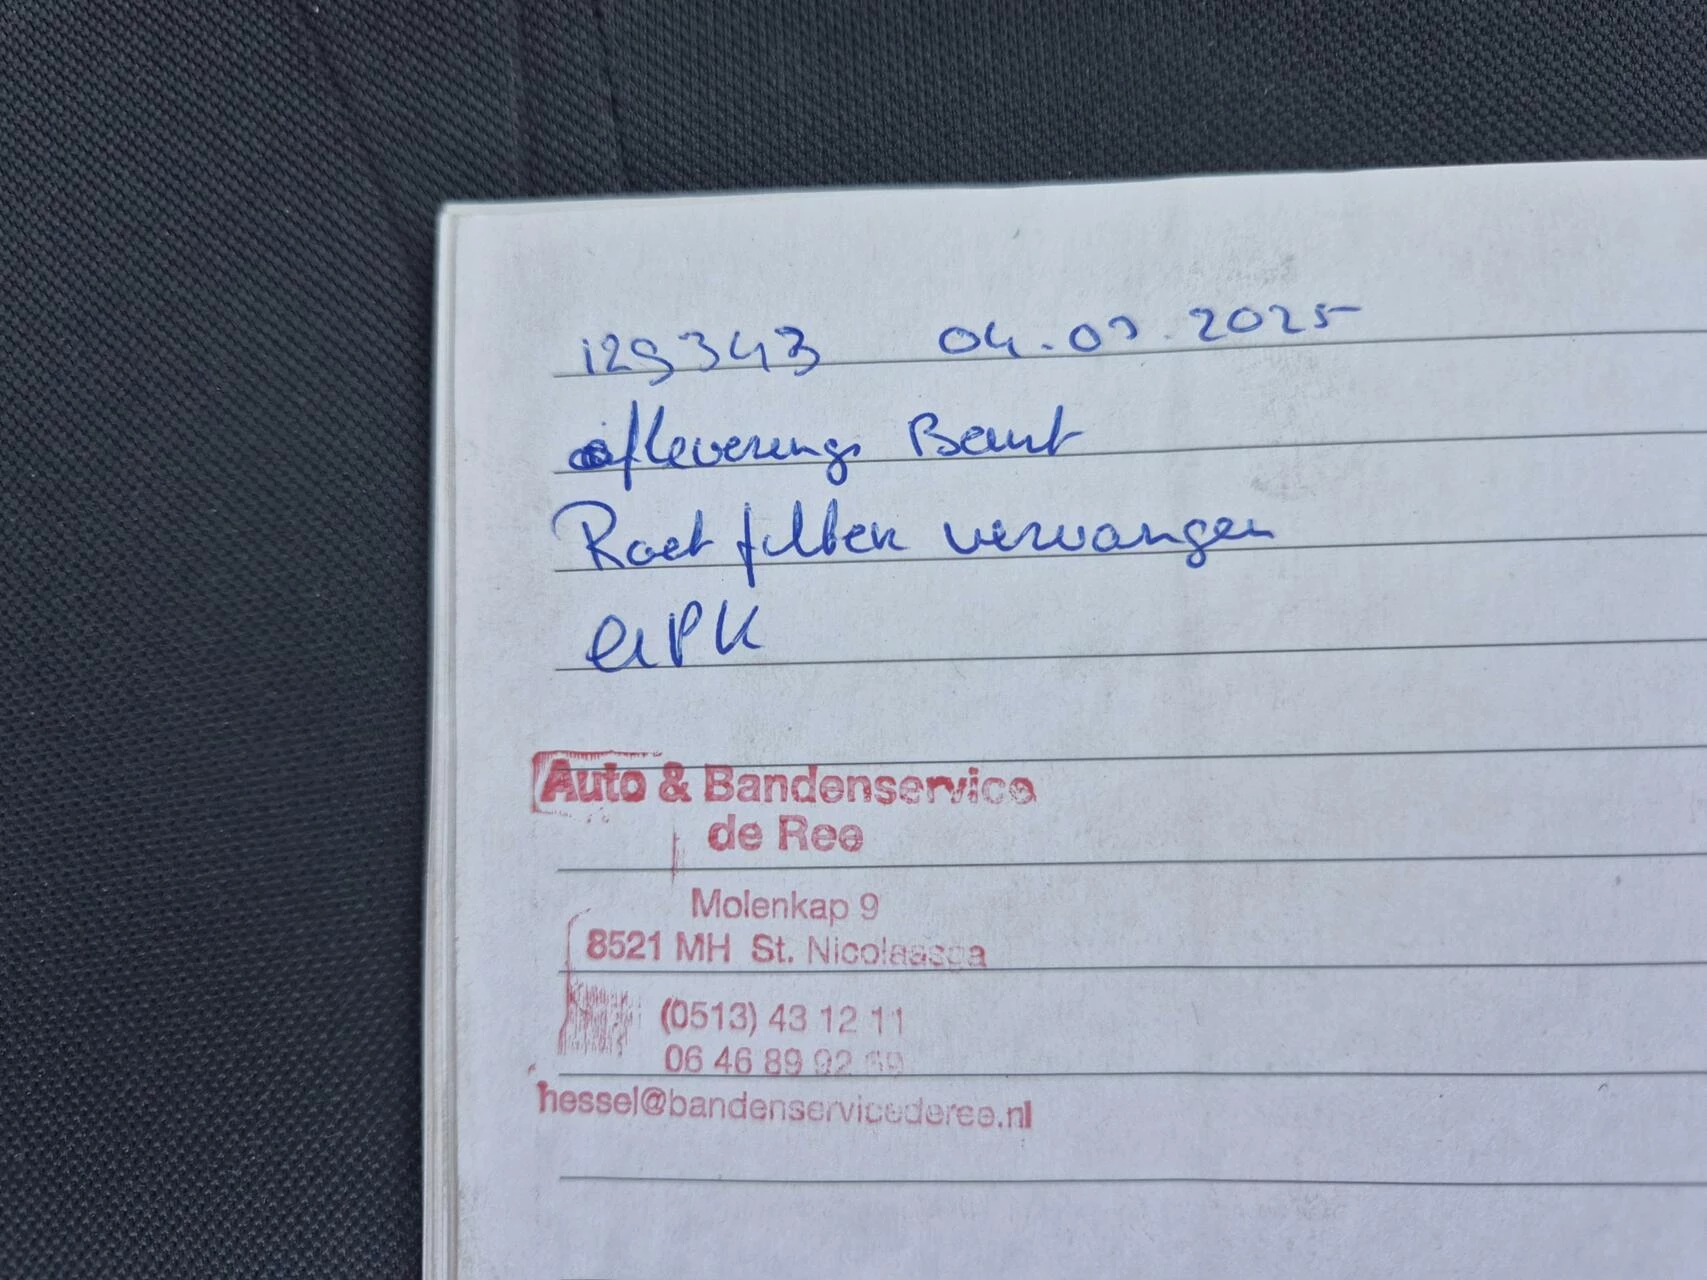 129343 04.03.2025
aflevering Beurt
Roet filter vervangen
APK
Auto & Bandenservice
de Ree
Molenkap 9
8521 MH St. Nicolaasga
(0513) 43 12 11
06 46 89 92
hessel@bandenservicederee.nl